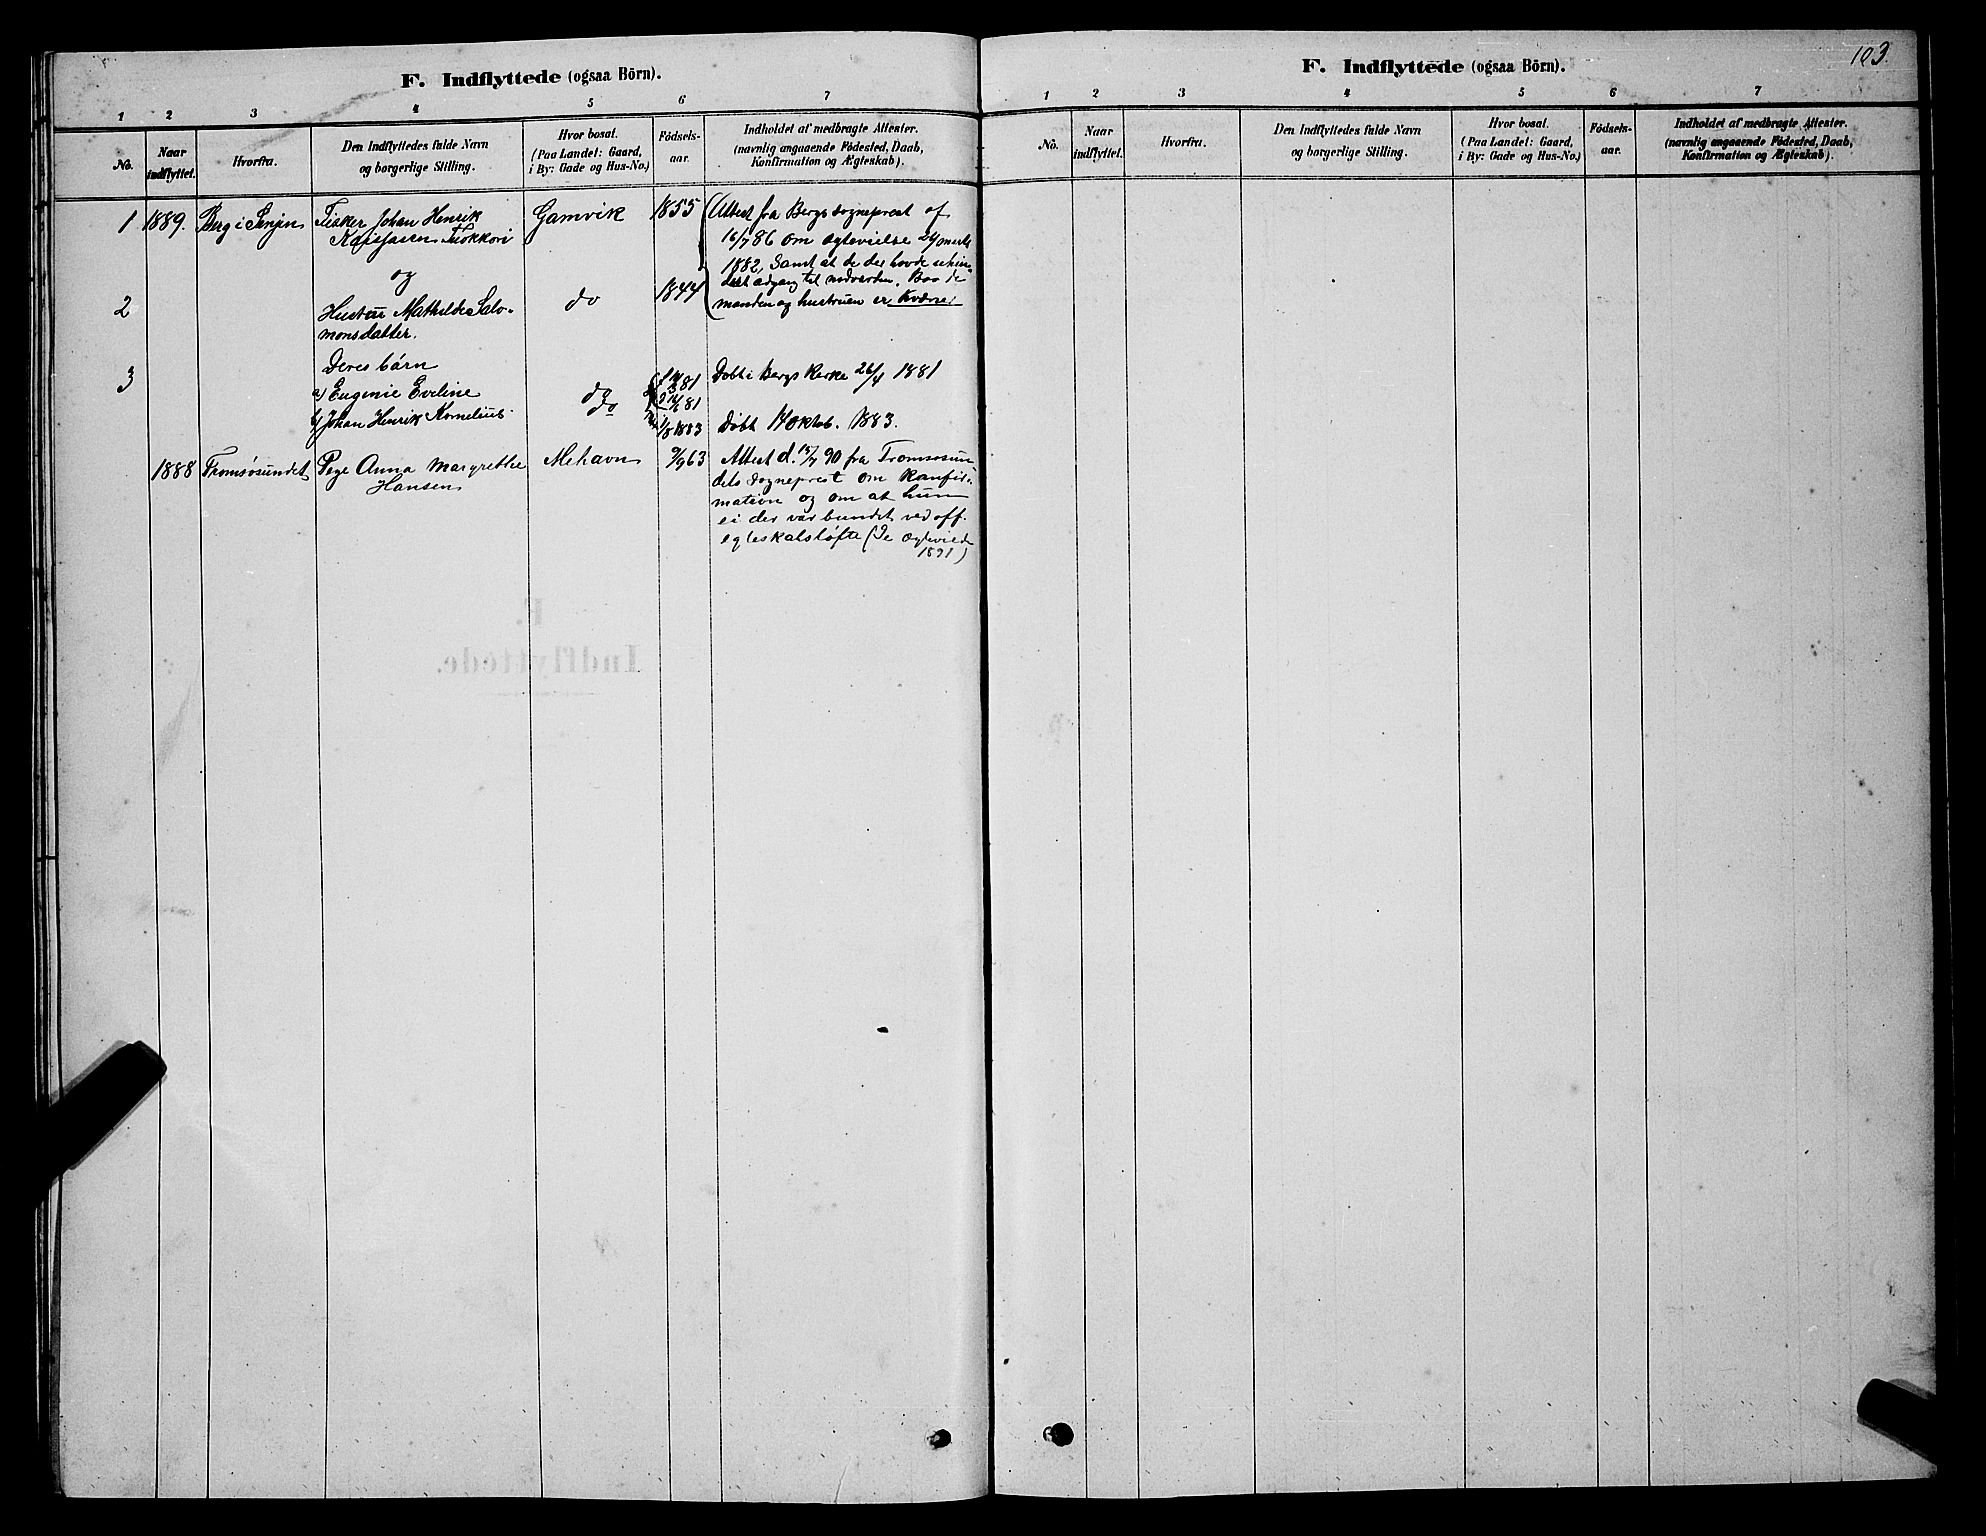 F. Indflyttede (ogsaa Börn).
1 2 3 4 5 6 7
No. Naar indflyttet. Hvorfra. Den Indflyttedes fulde Navn og borgerlige Stilling. Hvor bosat. (Paa Landet: Gaard, i By: Gade og Hus-No.) Fødsels-aar. Indholdet af medbragte Attester. (navnlig angaaende Fødested, Daab, Konfirmation og Ægteskab).
1 1889. Berg i Senjen Fisker Johan Henrik Gamvik 1855 Attest fra Bergs sogneprest af
16/7 86 om ægtevielse 24 marts
og
1882, Samt at de der havde
adgang til nadverden. Baade
2 Hustru Mathilde Salo- do 1844 manden og hustruen er Kvæner
monsdatter.
Deres börn
3 a) Eugenie Eveline do 81 Døbt i Bergs Kirke 26/4 1881
b) Johan Henrik Kornelius do 81
1883 Døbt 14 Oktob. 1883.
1888 Tromsøsundet Pige Anna Margrethe Mehavn 9/9 63 Attest d. 15/7 90 fra Tromsosun
Hansen dets sogneprest om Konfir-
mation og om at hun
ei der var bundet ved off.
egteskabsløfte (Se Ægteviede
1891)
F. Indflyttede (ogsaa Börn).
103.
1 2 3 4 5 6 7
No. Naar indflyttet. Hvorfra. Den Indflyttedes fulde Navn og borgerlige Stilling. Hvor bosat. (Paa Landet: Gaard, i By: Gade og Hus-No.) Fødsels-aar. Indholdet af medbragte Attester. (navnlig angaaende Fødested, Daab, Konfirmation og Ægteskab).